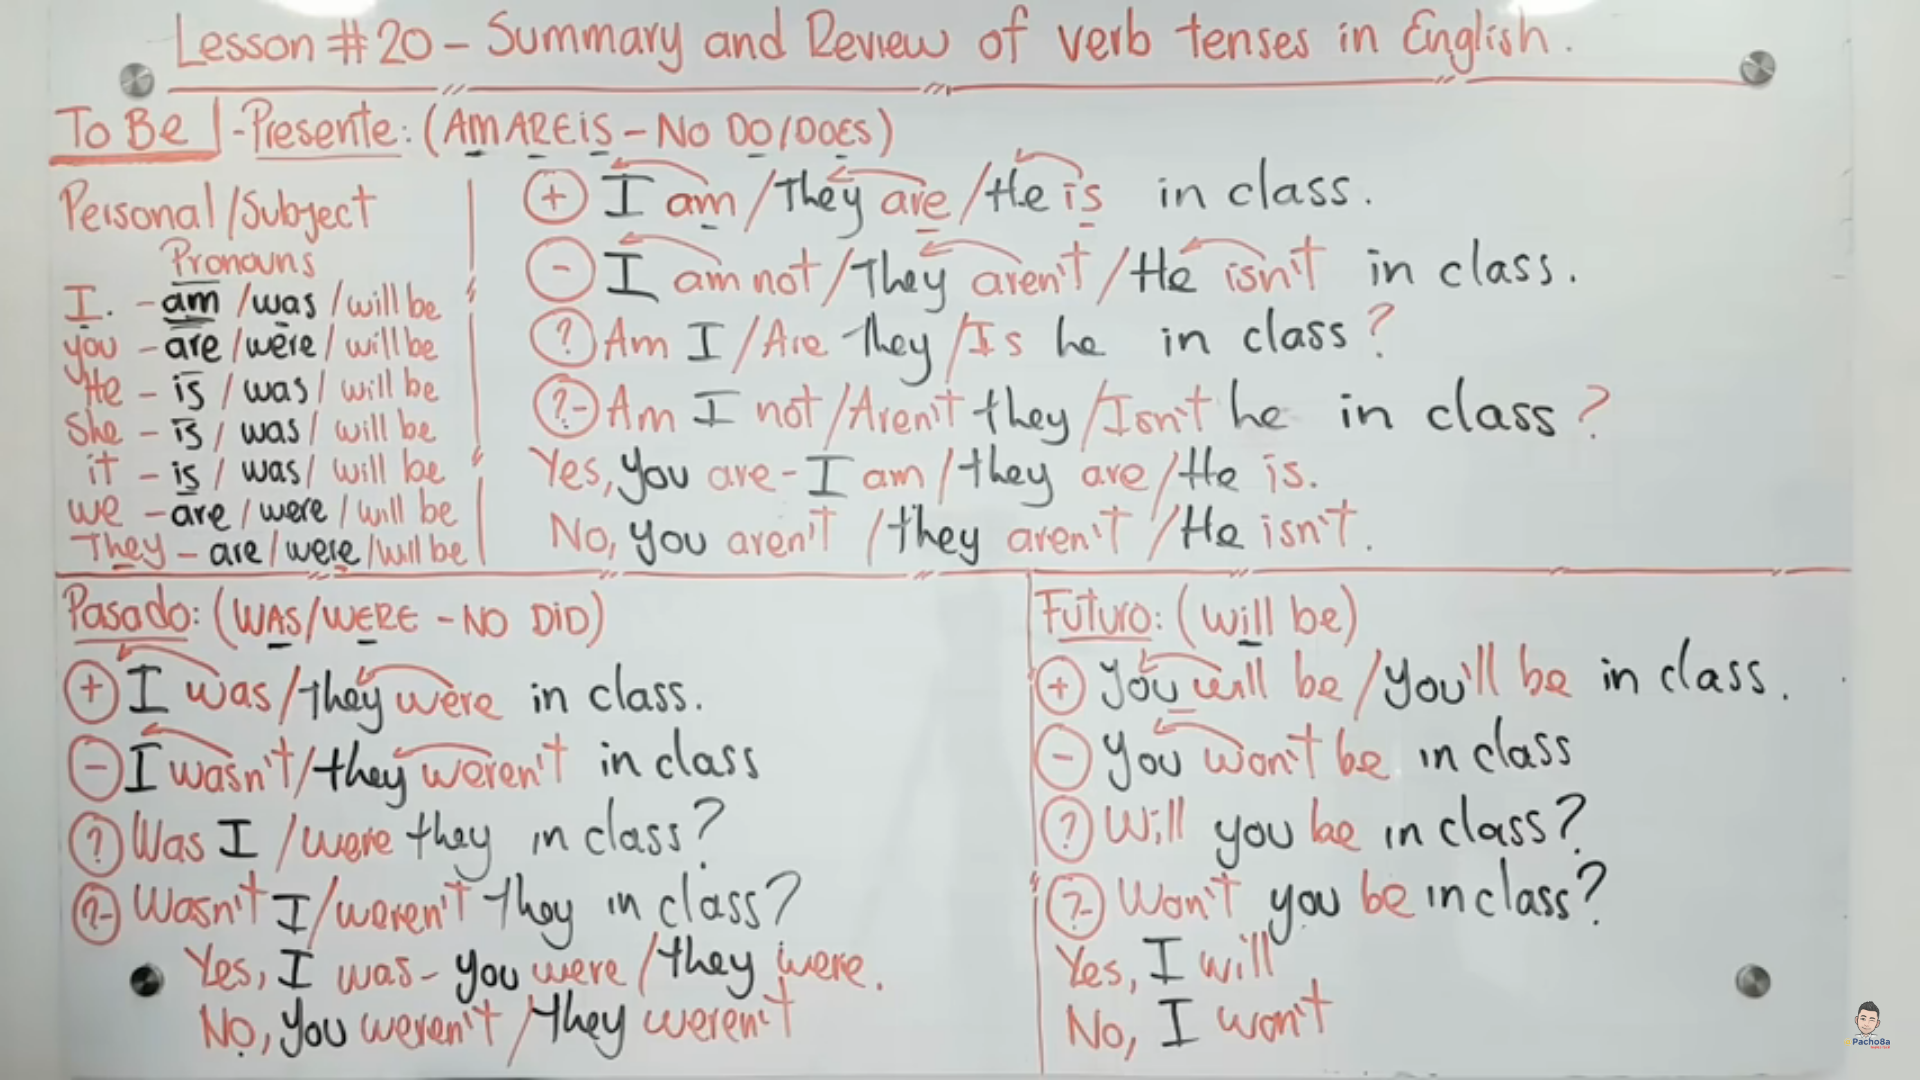 Lesson #20 - Summary and Review of verb tenses in English.
To Be - Presente: (AM ARE iS - No DO/DOES)
Personal/Subject
Pronouns
I. - am /was /will be
you - are/were/ will be
He - is / was / will be
She - is / was / will be
it - is / was / will be
we - are / were / will be
They - are/were/will be
(+) I am /They are /He is in class.
(-) I am not/They aren't /He isn't in class.
(?) Am I /Are they /Is he in class?
(?-) Am I not /Aren't they /Isn't he in class?
Yes, you are - I am / they are / He is.
No, you aren't / they aren't / He isn't.
Pasado: (WAS/WERE - NO DiD)
(+) I was /they were in class.
(-) I wasn't/they weren't in class
(?) Was I /were they in class?
(?-) Wasn't I/weren't they in class?
Yes, I was - you were / they were.
No, you weren't / they weren't
Futuro: (will be)
(+) You will be / you'll be in class.
(-) You won't be in class
(?) Will you be in class?
(?-) Won't you be in class?
Yes, I will
No, I won't
Pacho8a